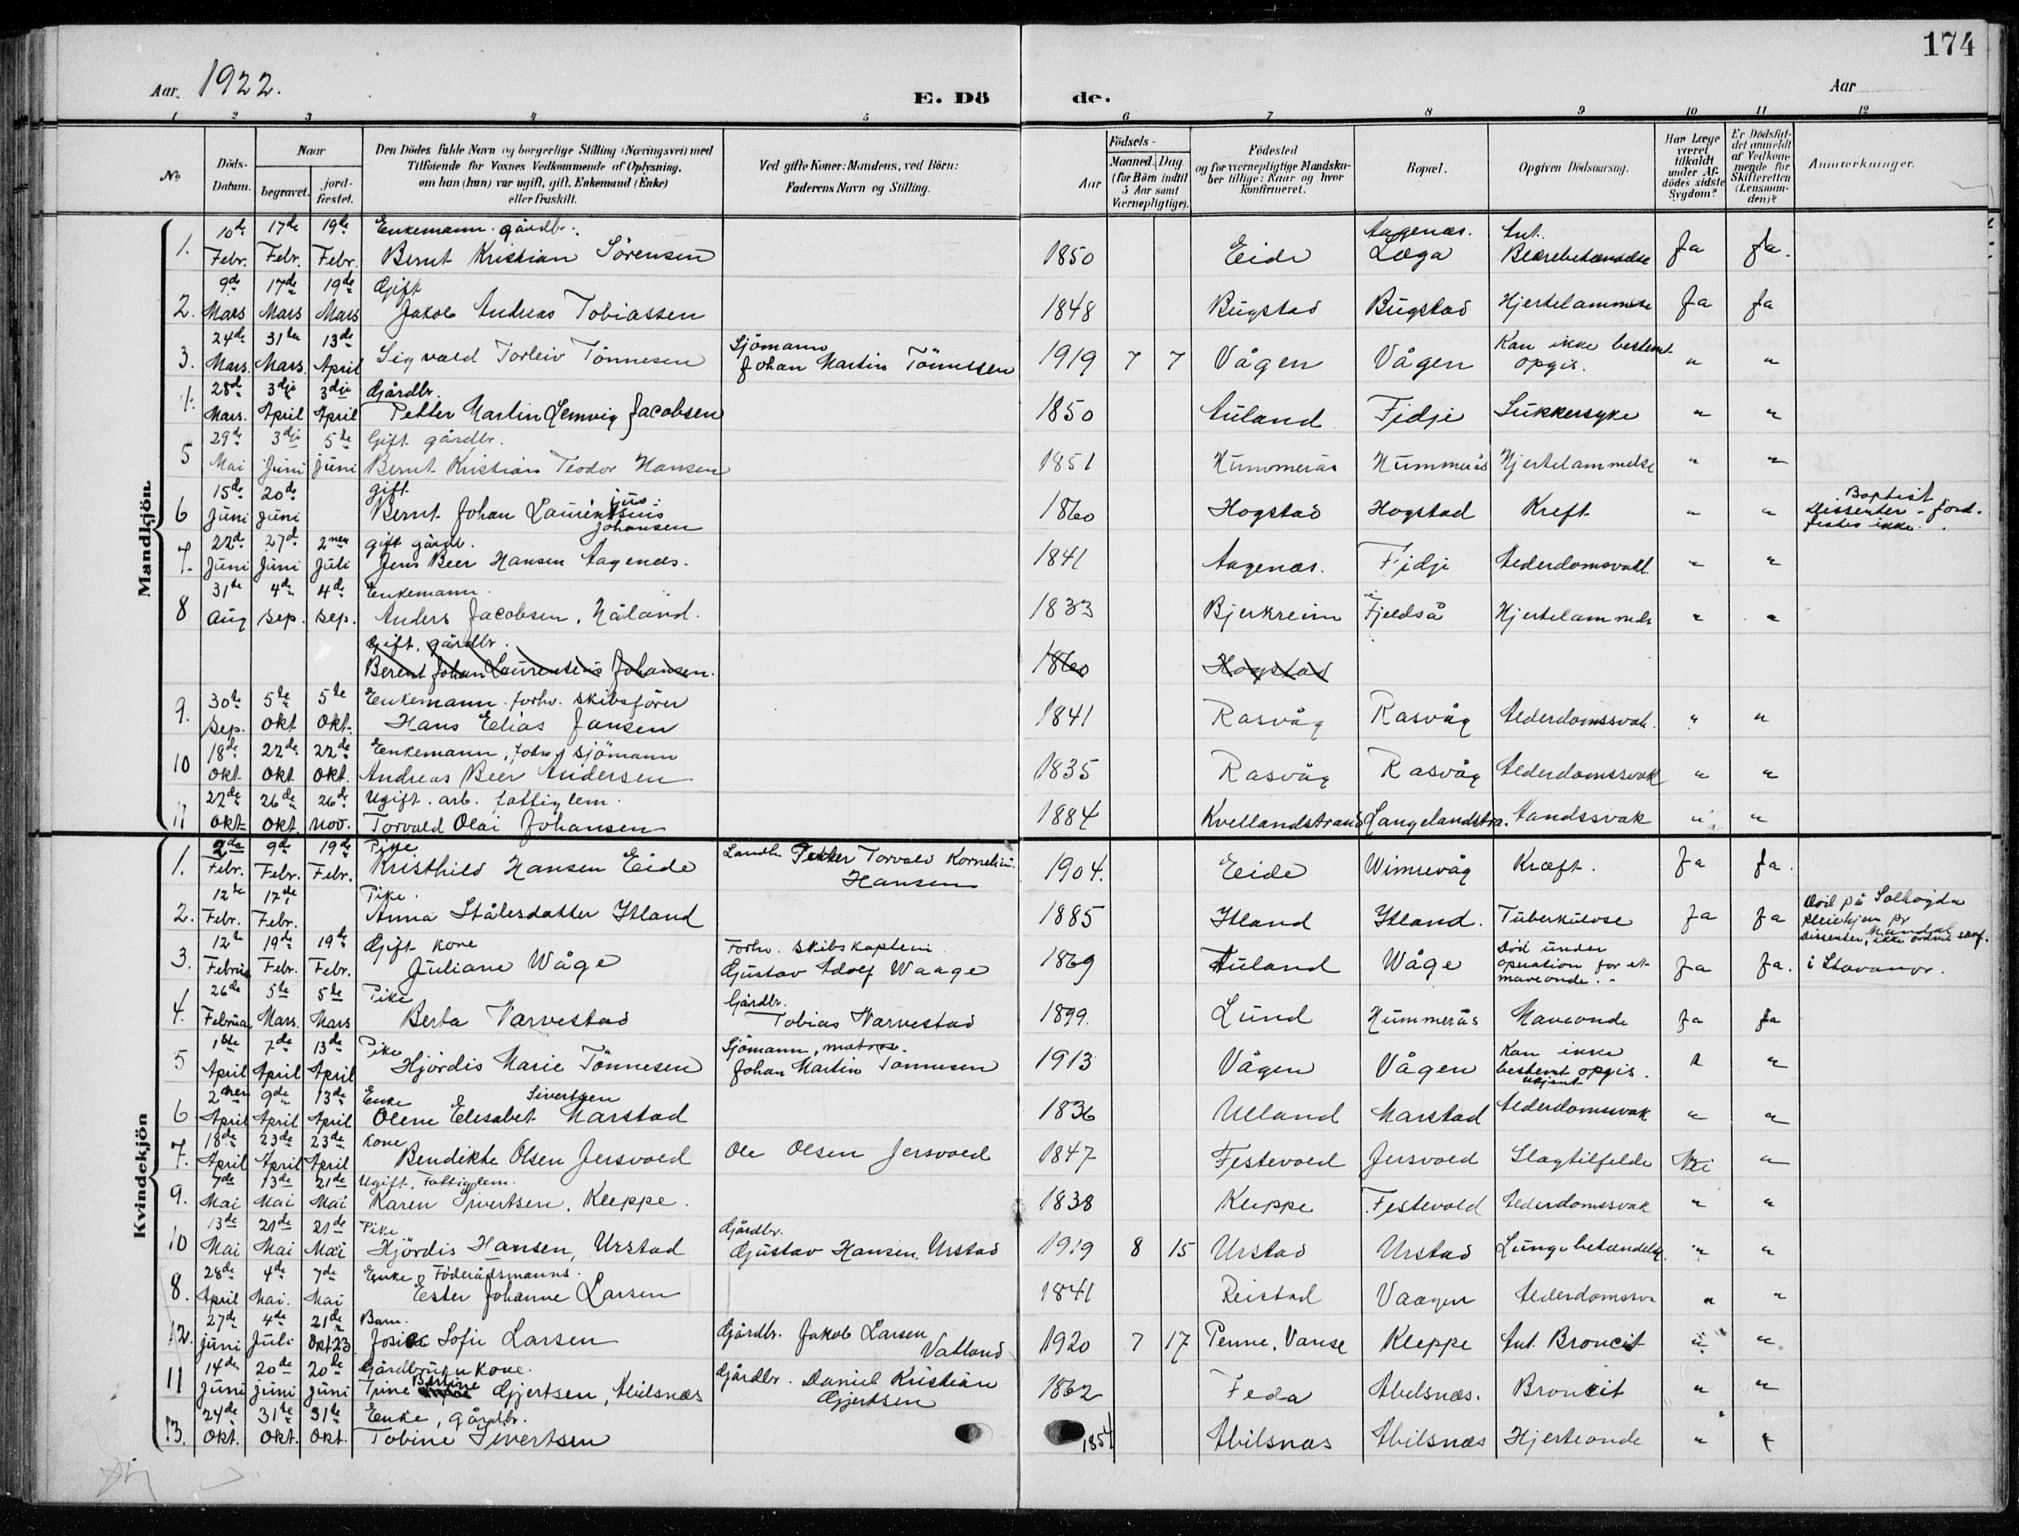 174
Aar 1922.
E. Dö de.
Aar
1 2 3 4 5 6 7 8 9 10 11 12
No.
Döds-Datum.
Naar
begravet.
jord-fæstet.
Den Dödes fulde Navn og borgerlige Stilling (Næringsvei) med
Tilföiende for Voxnes Vedkommende af Oplysning,
om han (hun) var ugift, gift, Enkemand (Enke)
eller fraskilt.
Ved gifte Koner: Mandens, ved Börn:
Faderens Navn og Stilling.
Födsels-
Aar
Maaned. Dag.
(for Börn indtil
5 Aar samt
Værnepligtige).
Födested
og for værnepligtige Mandska-
ber tillige: Naar og hvor
konfirmeret.
Bopæl.
Opgiven Dödsaarsag.
Har Læge
været
tilkaldt
under Af-
dödes sidste
Sygdom?
Er Dödsfal-
det anmeldt
af Vedkom-
mende for
Skifteretten
(Lensman-
den)?
Anmærkninger.
Mandkjön.
10de 17de 19de Enkemann. gårdbr. Aagenæs. Ant.
1. Febr. Febr. Febr. Bernt Kristian Sörensen 1850 Eide Læga Blærebetændelse Ja Ja.
9de 17de 19de Gift
2. Mars Mars Mars Jakob Andreas Tobiassen 1848 Bugstad Bugstad Hjertelammelse Ja Ja
24de 31te 13de Sjömann Kan ikke bestemt
3. Mars. Mars. April Sigvald Torleiv Tönnesen Johan Martin Tönnesen 1919 7 7 Vågen Vågen opgis. " "
28de 3dje 3dje Gårdbr.
4. Mars. April April Petter Martin Lemvig Jacobsen 1850 Auland Fidje Sukkersyke " "
29de 3dje 5te Gift gårdbr.
5 Mai Juni Juni Bernt Kristian Teodor Hansen 1851 Hummerås Hummerås Hjertelammelse " "
15de 20de gift Baptist
6 Juni Juni Bernt Johan Laurentius Johansen 1860 Hogstad Hogstad Kreft " " Dissenter - jord-
festes ikke.
22de 27de 2nen gift gårdb.
7. Juni Juni Juli Jens Beer Hansen Aagenæs. 1841 Aagenæs. Fidje Alderdomsvakl. " "
31te 4de 4de Enkemann.
8 Aug Sep. Sep. Anders Jacobsen, Håland. 1833 Bjerkreim Fjeldså Hjertelammelse " "
Gift, gårdbr.
Berent Johan Laurentsius Johansen. 1860 Hogstad
30te 5te 5te Enkemann. forhv. skibsförer
9. Sep. Okt Okt. Hans Elias Jansen 1841 Rasvåg Rasvåg Alderdomssvak. " "
18de 22de 22de Enkemann, forhv sjömann
10 Okt Okt Okt. Andreas Beer Andersen 1835 Rasvåg Rasvåg Alderdomssvak " "
22de 26de 26de Ugift. arb. fattiglem.
11 Okt- Okt Nov. Torvald Olai Johansen 1884 Kvellandstrand Langelandstra. Aandssvak " "
Kvindekjön
2de 9de 19de Pike
1. Febr. Febr. Febr. Kristhild Hansen Eide Landh. Petter Torvald Kornelius Hansen 1904. Eide Wimrevåg Kræft. Ja Ja.
12te 17de Pike. Död på Solhögda
2. Febr. Febr. Anna Stålesdatter Itland 1885 Itland Itland. Tuberkulose Ja Ja pleiehjem pr Mandal
Dissenter, ikke
12te 19de 19de Gift kone Forhv. skibskaptein Död under
3. Februar Febr. Febr. Juliane Wåge Gustav Adolf Waage 1869 Auland Wåge operation for et maveonde. Ja Ja. i Stavanger.
26de 5te 5te Pike Gårdbr.
4. Februar Mars. Mars Berta Varvestad Tobias Varvestad 1899. Lund Hummerås Maveonde Ja Ja
1ste 7de 13de Pike Sjömann, matros. Kan ikke
5 April April April Hjördis Marie Tönnesen Johan Martin Tönnesen 1913 Vågen Vågen bestemt opgis. " "
ukjent
2nen 9de 13de Enke Sivertsen
6 April April April Olene Elisabet Marstad 1836 Ulland Marstad Alderdomssvak " "
18de 23de 23de Kone
7. April April April Bendikte Olsen Jersvold Ole Olsen Jersvold 1847 Festevold Jersvold Slagtilfelde Nei "
7de 13de 21de Ugift. Fattiglem.
9. Mai Mai Mai Karen Sivertsen, Kleppe. 1838 Kleppe Festevold Alderdomssvak " "
13de 21de 21de Pike Gårdbr.
10 Mai Mai Mai Hjördis Hansen, Urstad Gustav Hansen Urstad 1919 8 15 Urstad Urstad Lungebetændelse. " "
28de 4de 7de Enke Föderådsmanns.
8. April Mai. Mai Ester Johanne Larsen 1841 Reistad Vaagen Alderdomssva " "
27de 4de 21de Barn.
12. Juni Juli Okt 23 Josie Sofie Larsen Gårdbr. Jakob Larsen Vatland 1920 7 17 Penne, Vanse Kleppe Ant. Broncit " "
14de 20de 20de Gårdbruker Kone.
11 Juni Juni Juni Trine Bertine Gjertsen, Abilsnæs Gårdbr. Daniel Kristian Gjertsen 1862 Feda Abelsnæs. Broncit " "
24de 31te 31te Enke, gårdbr.
13. Okt. Okt. Okt. Tobine Sivertsen 1854 Abilsnæs Abilsnæs Hjerteonde " "